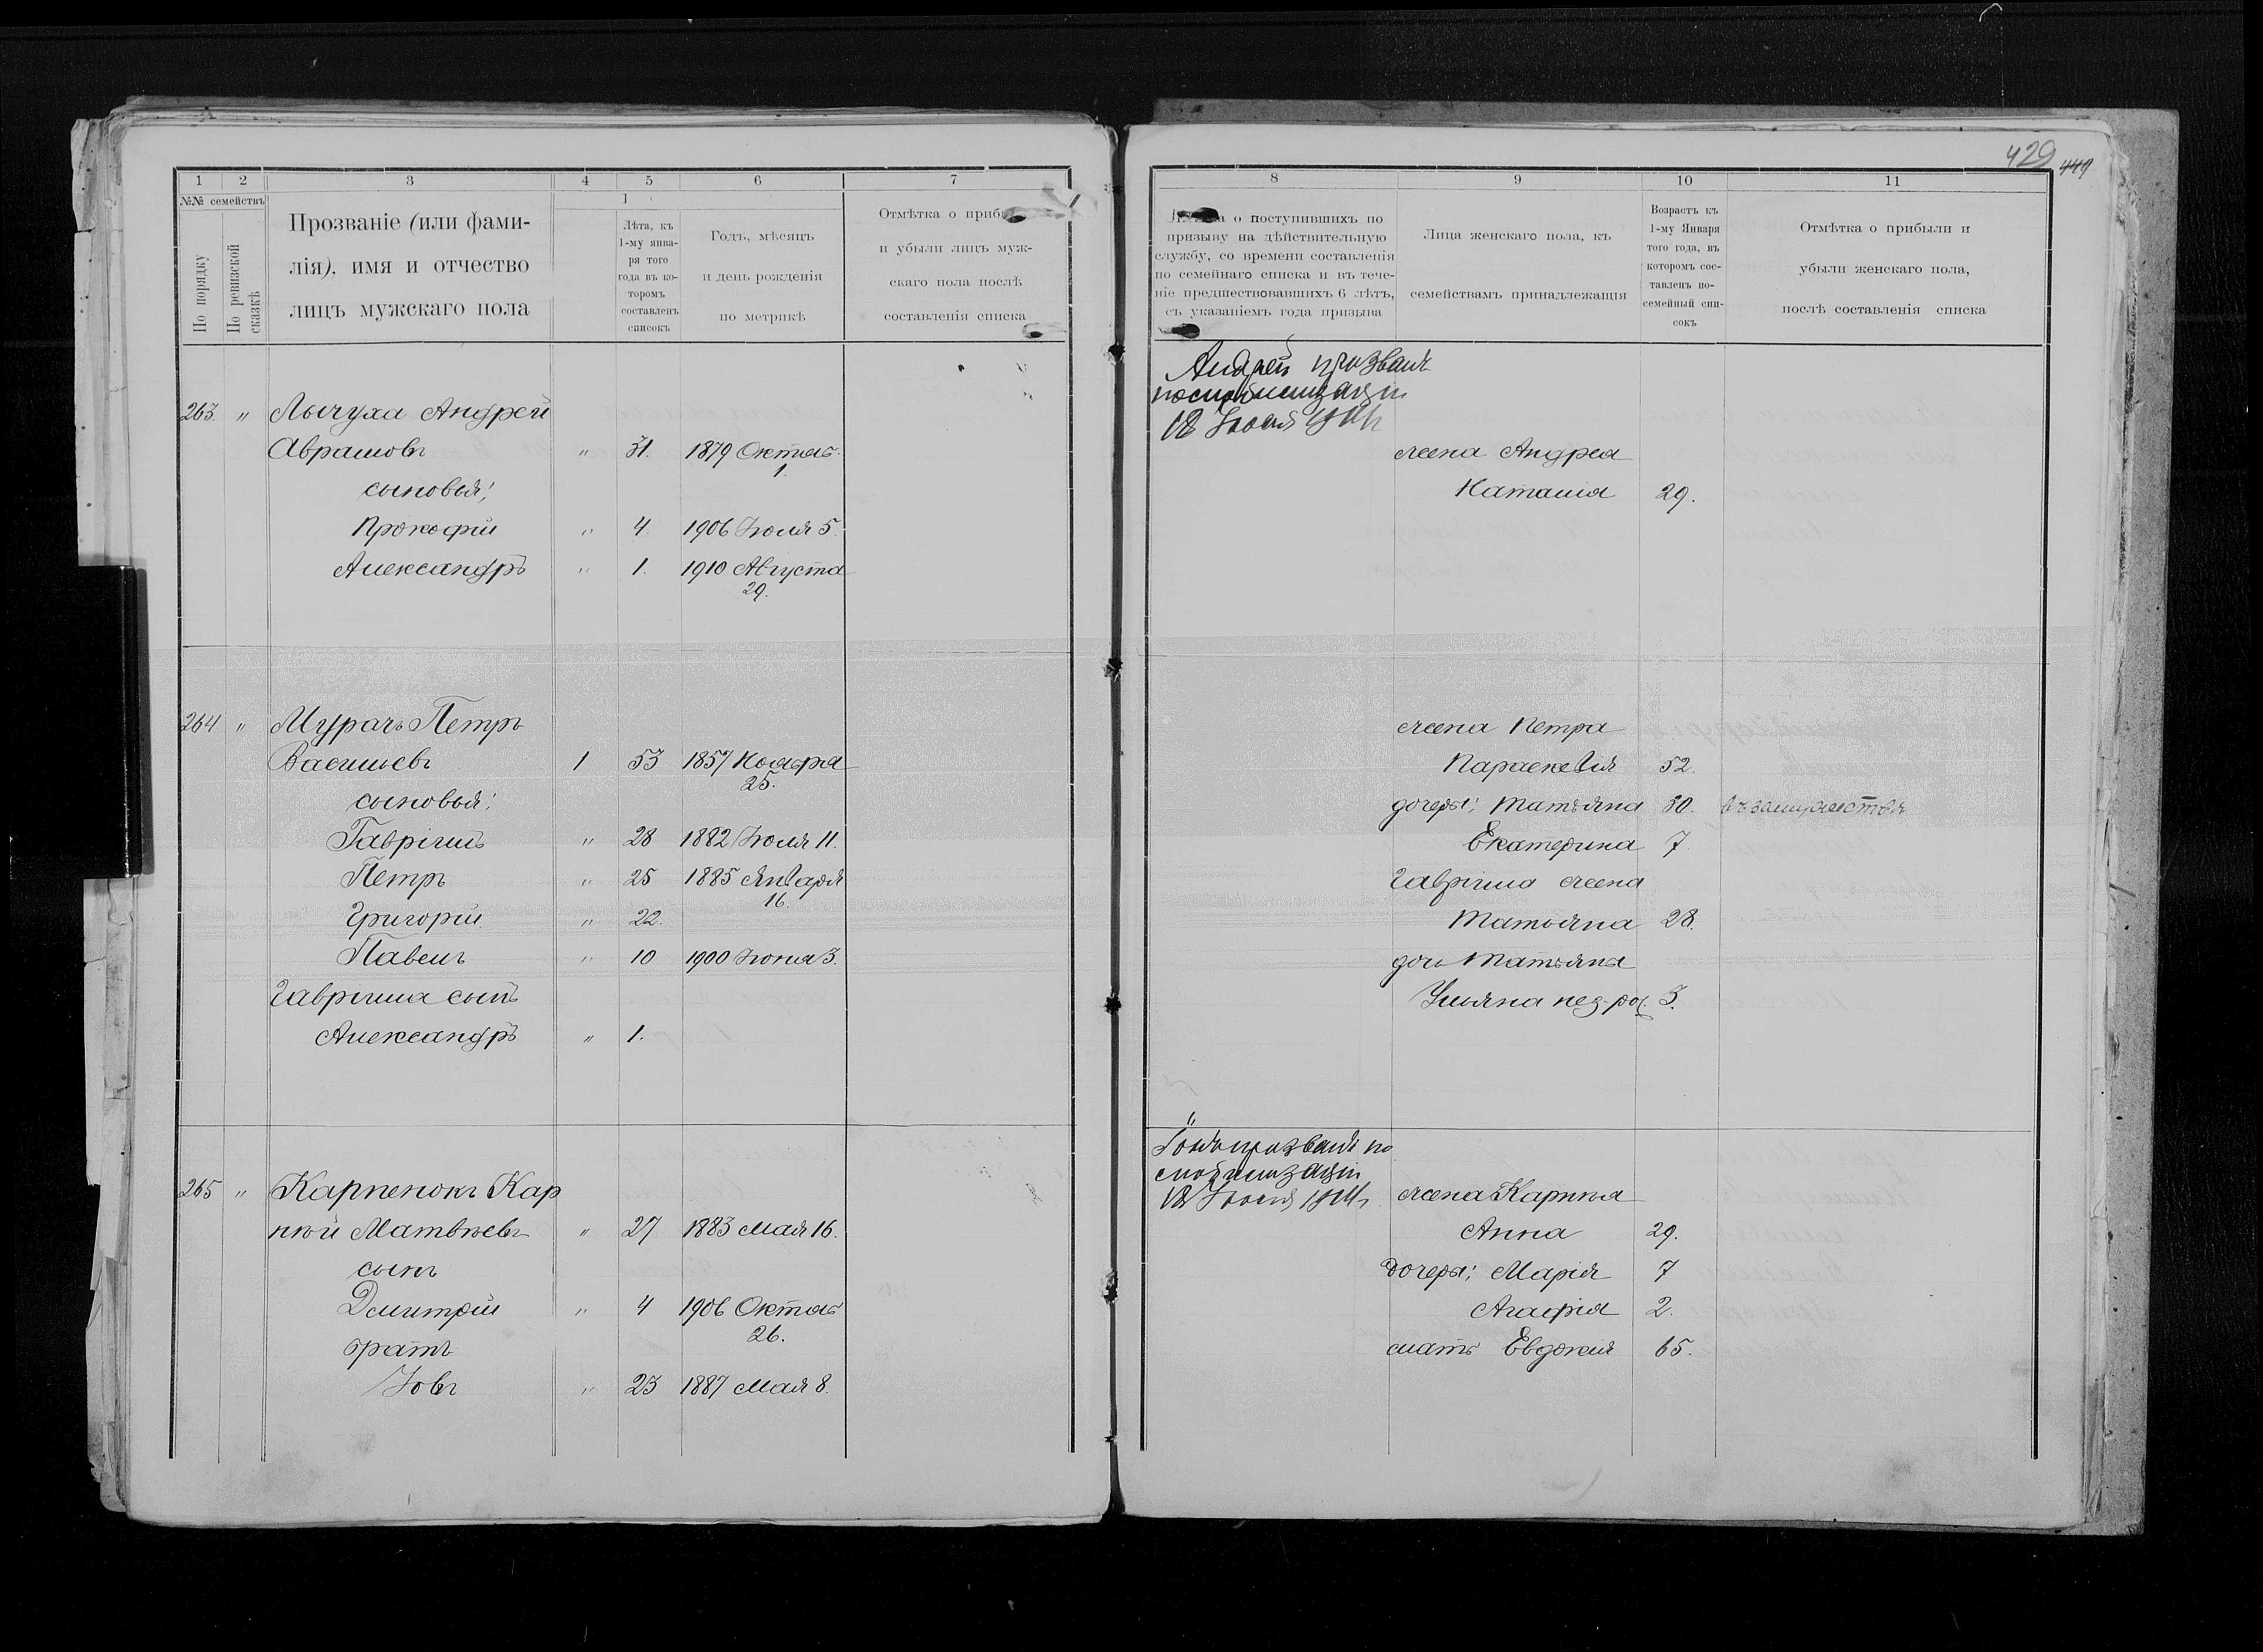 429 449
1 2 3 4 5 6 7
№№ семействъ
По порядку
По ревизской сказкѣ
Прозваніе (или фами-
лія), имя и отчество
лицъ мужскаго пола
1
Лѣта, къ
1-му янва-
ря того
года въ ко-
торомъ
составленъ
списокъ
Годъ, мѣсяцъ
и день рожденія
по метрикѣ
Отмѣтка о приб
и убыли лицъ муж-
скаго пола послѣ
составленія списка
263. " Лычуха Андрей
Абрамовъ " 31. 1879 Октяб.
1.
сыновья:
Прокофій " 4. 1906 Іюля 5.
Александръ " 1. 1910 Августа
29.
264 " Мурачъ Петръ
Васильевъ 1 53 1857 Ноября
25.
сыновья:
Гавріилъ " 28 1882 Іюля 11.
Петръ " 25 1885 Января
16.
Григорій " 22.
Павелъ " 10 1900 Іюня 3.
Гавріила сынъ
Александръ " 1.
265 " Карпенокъ Кар
пѣй Матвѣевъ " 27 1883 Мая 16.
сынъ
Дмитрій " 4 1906 Октяб
26.
братъ
Іовъ " 23 1887 Мая 8.
8 9 10 11
о поступившихъ по
призыву на дѣйствительную
службу, со времени составленія
по семейнаго списка и въ тече-
ніе предшествовавшихъ 6 лѣтъ,
съ указаніемъ года призыва
Лица женскаго пола, къ
семействамъ принадлежащія
Возрастъ къ
1-му Января
того года, въ
которомъ сос-
тавленъ по-
семейный спи-
сокъ
Отмѣтка о прибыли и
убыли женскаго пола,
послѣ составленія списка
Андрей призванъ
по мобилизаціи
18 Іюля 1914 г
жена Андрея
Наталія 29.
жена Петра
Параскевія 52.
дочери: Татьяна 30. въ замужествѣ
Екатерина 7.
Гавріила жена
Татьяна 28.
дочь Татьяны
Ульяна нез-род. 3.
"
Іовъ призванъ по
мобилизаціи
18 Іюля 1914 г. жена Карпѣя
Анна 29.
дочери: Марія 7
Агафія 2.
мать Евдокія 65.